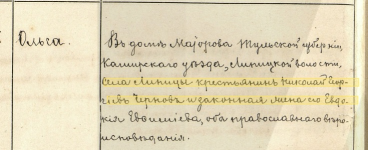 Ольга.
Въ домѣ Маіорова Тульской губерніи,
Каширскаго уѣзда, Липицкой волости,
села Липицы крестьянинъ Николай Геор-
гіевъ Черновъ и законная жена его Евдо-
кія Евѳиміева, оба православнаго вѣро-
исповѣданія.